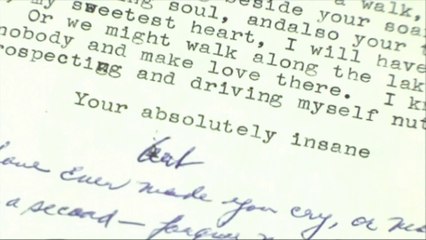 beside your soa
a walk,
ing soul, andalso your t
my sweetest heart, I will have
Or we might walk along the lak
nobody and make love there. I k
rospecting and driving myself nut
Your absolutely insane
Kurt
ever made you cry, or
a second — forgive